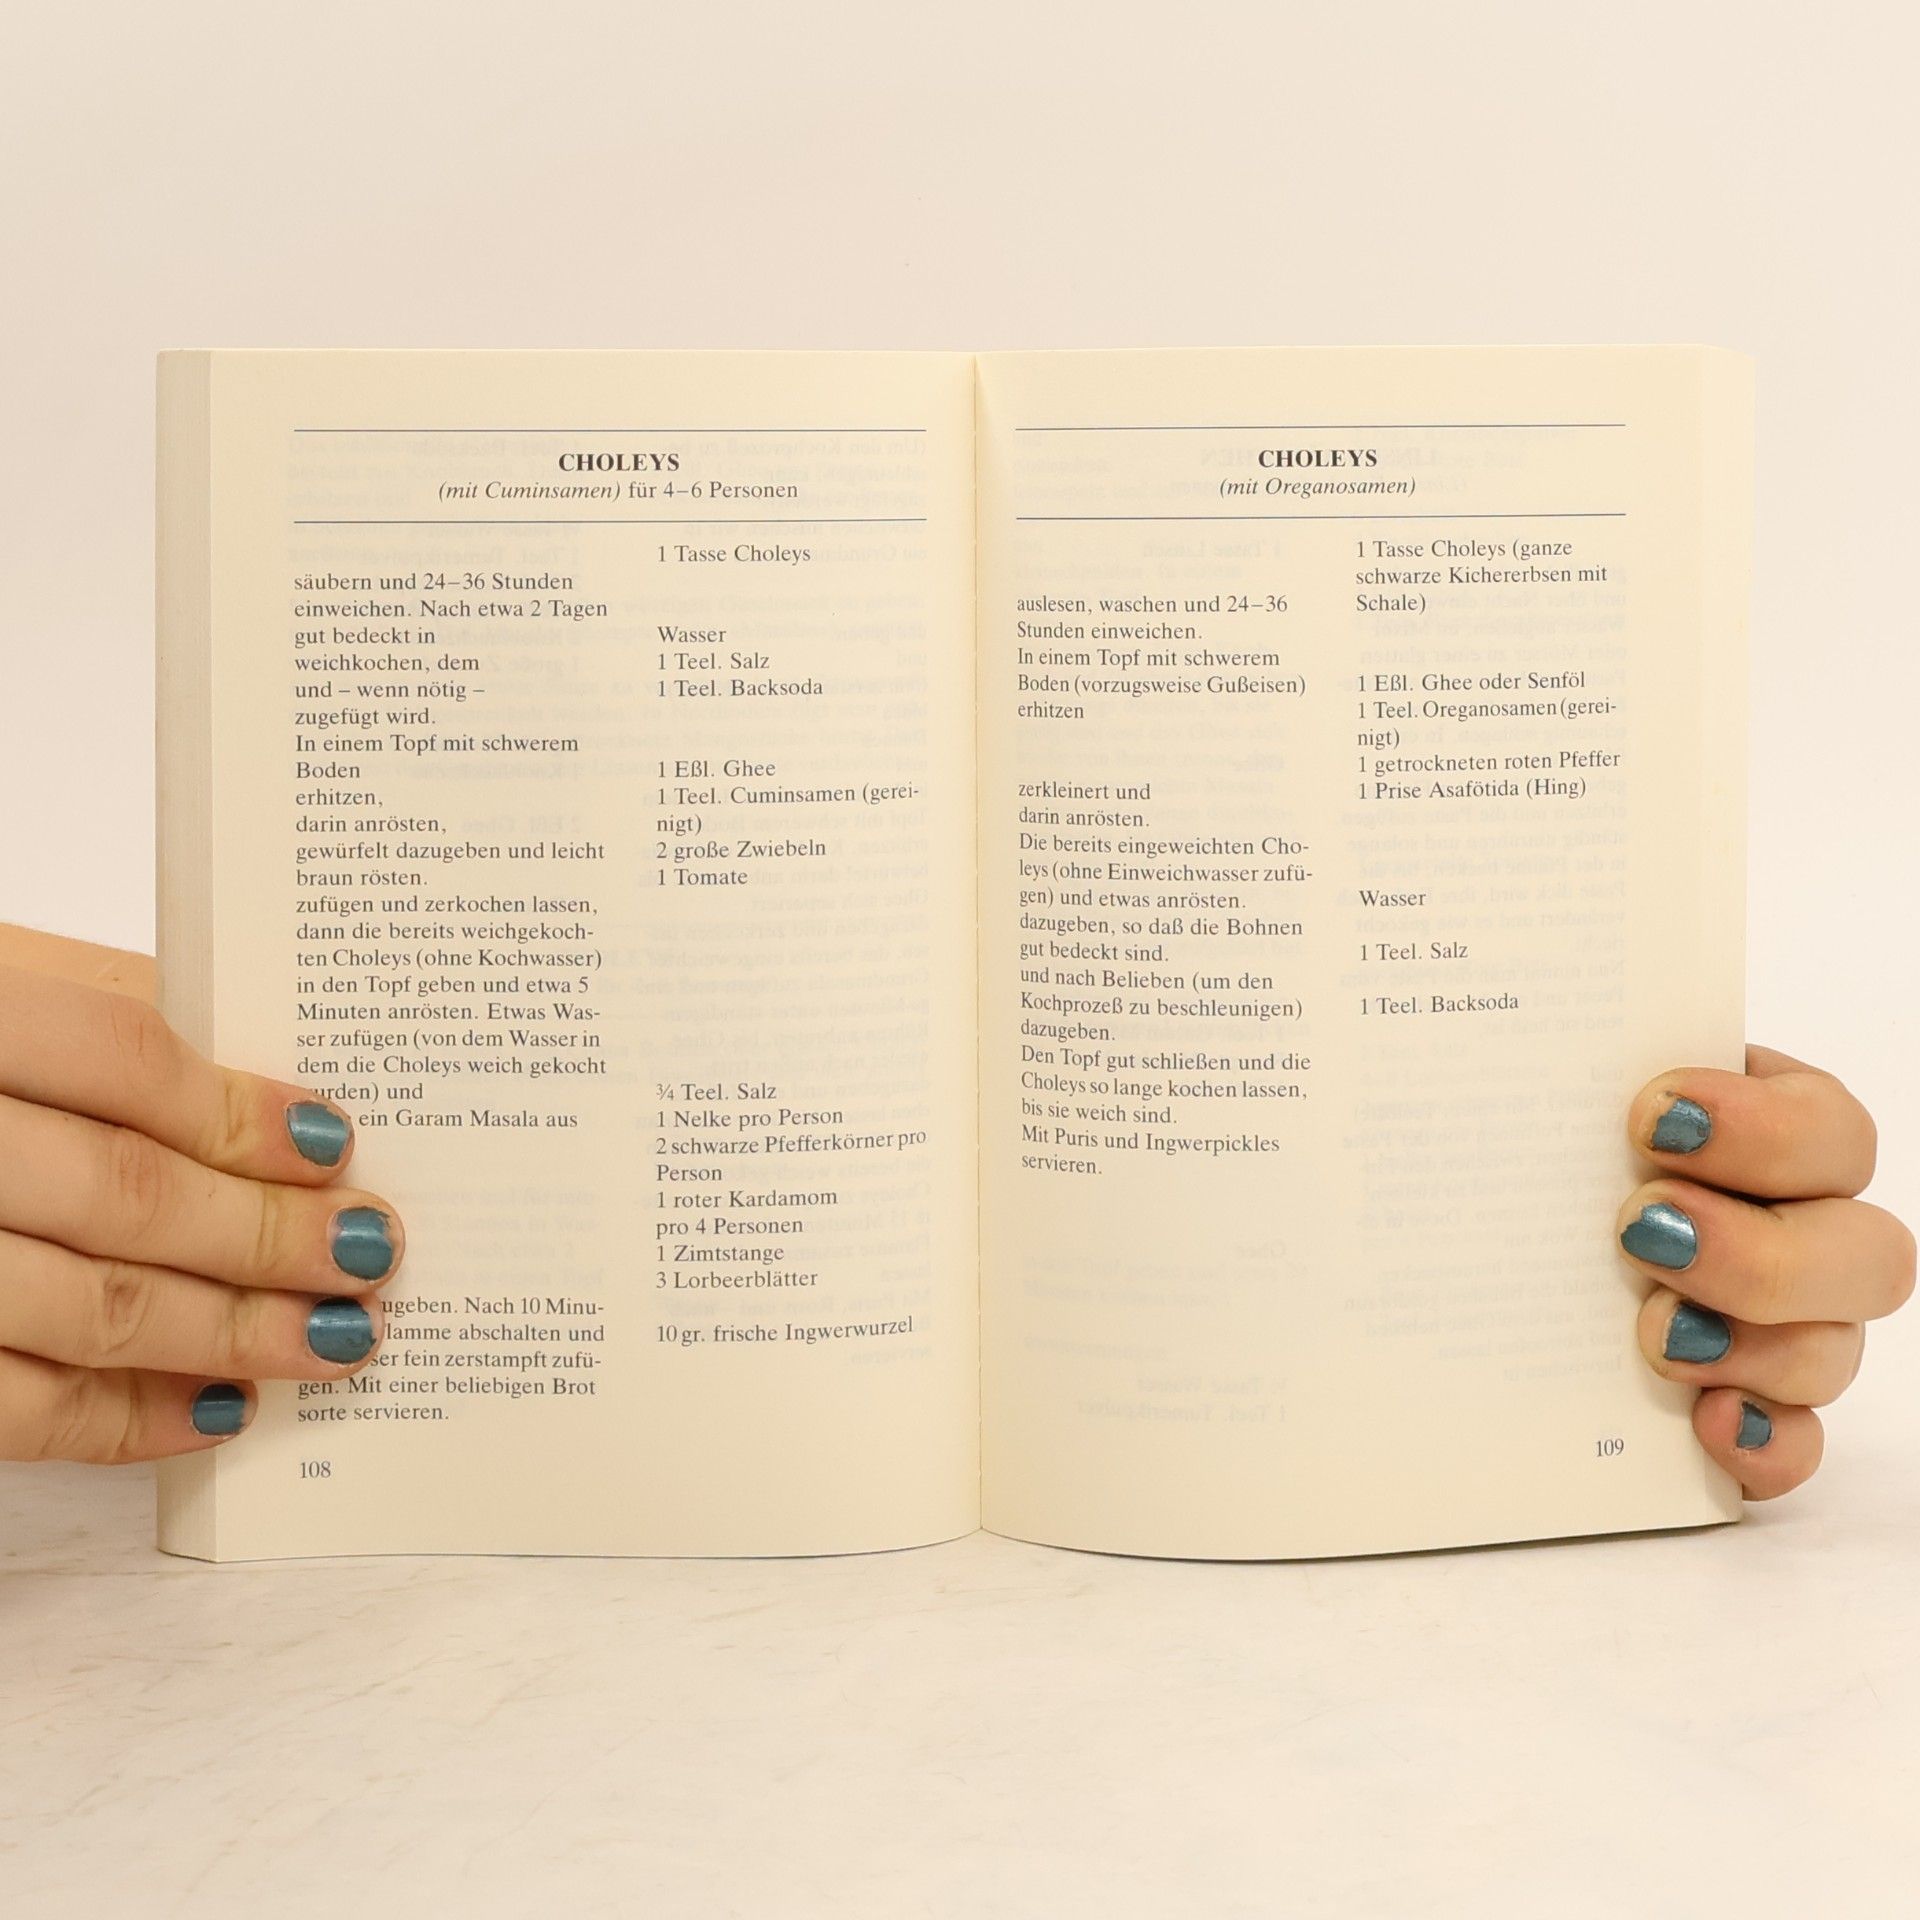 CHOLEYS
(mit Cuminsamen) für 4–6 Personen
1 Tasse Choleys
säubern und 24–36 Stunden
einweichen. Nach etwa 2 Tagen
gut bedeckt in
Wasser
weichkochen, dem
1 Teel. Salz
und – wenn nötig –
1 Teel. Backsoda
zugefügt wird.
In einem Topf mit schwerem
Boden
1 Eßl. Ghee
erhitzen,
1 Teel. Cuminsamen (gerei-
nigt)
darin anrösten,
2 große Zwiebeln
gewürfelt dazugeben und leicht
braun rösten.
1 Tomate
zufügen und zerkochen lassen,
dann die bereits weichgekoch-
ten Choleys (ohne Kochwasser)
in den Topf geben und etwa 5
Minuten anrösten. Etwas Was-
ser zufügen (von dem Wasser in
dem die Choleys weich gekocht
und
¾ Teel. Salz
ein Garam Masala aus
1 Nelke pro Person
2 schwarze Pfefferkörner pro
Person
1 roter Kardamom
pro 4 Personen
1 Zimtstange
3 Lorbeerblätter
Nach 10 Minu-
abschalten und
10 gr. frische Ingwerwurzel
fein zerstampft zufü-
gen. Mit einer beliebigen Brot
sorte servieren.
108
CHOLEYS
(mit Oreganosamen)
1 Tasse Choleys (ganze
schwarze Kichererbsen mit
Schale)
auslesen, waschen und 24–36
Stunden einweichen.
In einem Topf mit schwerem
Boden (vorzugsweise Gußeisen)
1 Eßl. Ghee oder Senföl
erhitzen
1 Teel. Oreganosamen (gerei-
nigt)
1 getrockneten roten Pfeffer
zerkleinert und
1 Prise Asafötida (Hing)
darin anrösten.
Die bereits eingeweichten Cho-
leys (ohne Einweichwasser zufü-
gen) und etwas anrösten.
Wasser
dazugeben, so daß die Bohnen
gut bedeckt sind.
1 Teel. Salz
und nach Belieben (um den
Kochprozeß zu beschleunigen)
1 Teel. Backsoda
dazugeben.
Den Topf gut schließen und die
Choleys so lange kochen lassen,
bis sie weich sind.
Mit Puris und Ingwerpickles
servieren.
109